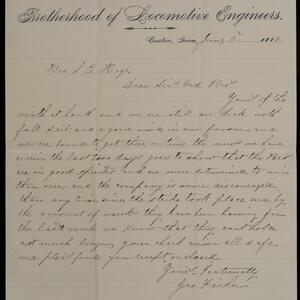 Brotherhood of Locomotive Engineers.
Creston, Iowa, June 11 1888
Bro S. E. Hoge
Dear Sir and Bro
Yours of the
ninth at hand and we are still on deck with
full sail and a good wind in our favor and
we are bound to get there or bust the news we have
receive the last two days goes to show that the Bros
are in good spirits and are more determined to win
than ever and the company is more discouraged
than any time since the strike took place and by
the amount of wrecks they have been having for
the last week we know that they cant hold
out much longer your check arrived all safe
and please find your receipt enclosed
Yours Fraternally
Geo Fisher